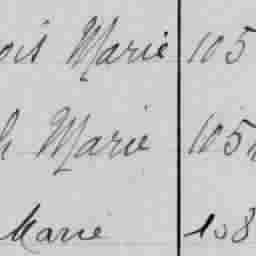 ois Marie 105
h Marie 105
Marie 108